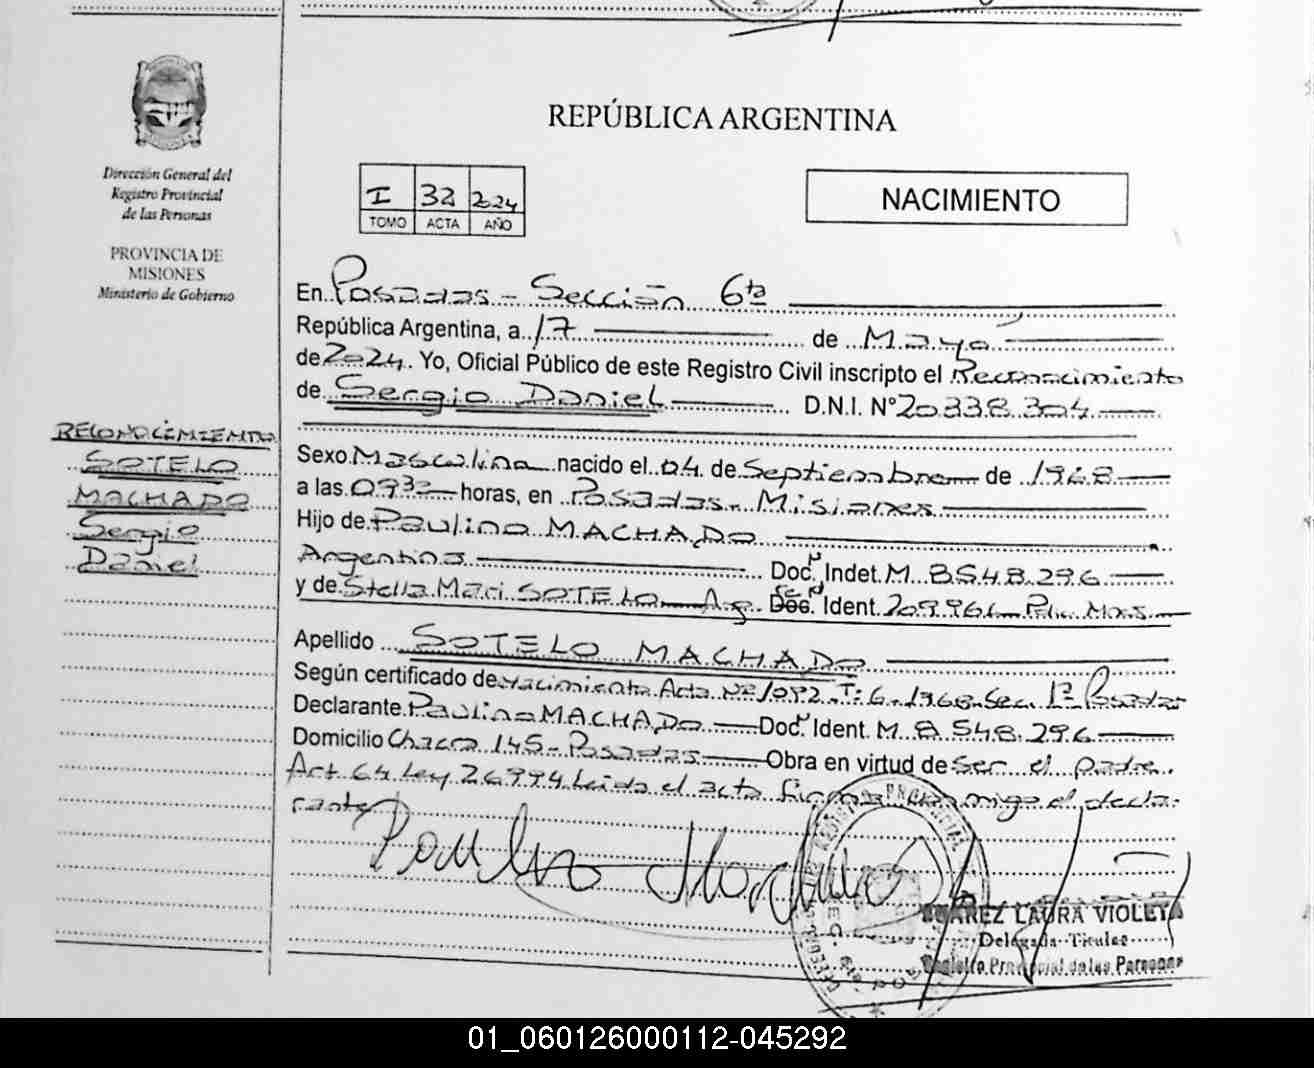 REPÚBLICA ARGENTINA
Dirección General del
Registro Provincial
de las Personas
PROVINCIA DE
MISIONES
Ministerio de Gobierno
I 32 2024
TOMO ACTA AÑO
NACIMIENTO
En Posadas - Sección 6ta
República Argentina, a 17 de Mayo
de 2024. Yo, Oficial Público de este Registro Civil inscripto el Reconocimiento
de Sergio Daniel D.N.I. Nº 20.338.304
RECONOCIMIENTO
SOTELO
MACHADO
Sergio
Daniel
Sexo Masculino nacido el 04 de Septiembre de 1968
a las 09 horas, en Posadas - Misiones
Hijo de Paulino MACHADO
Argentino Doc. Indet. M. 8.548.296
y de Stella Mari SOTELO Arg. Ident.
Apellido SOTELO MACHADO
Según certificado de nacimiento Acta Nº 1092 T: 6 - 1968 - Sec. 1ª Posadas
Declarante Paulino MACHADO Doc. Ident. M. 8.548.296
Domicilio Chacra 145 - Posadas Obra en virtud de ser el padre.
Art. 64 Ley 26994 Leída el acta firma conmigo el decla-
rante
Paulino Machado
SUAREZ LAURA VIOLETA
Delegada Titular
Registro Provincial de las Personas
01_060126000112-045292